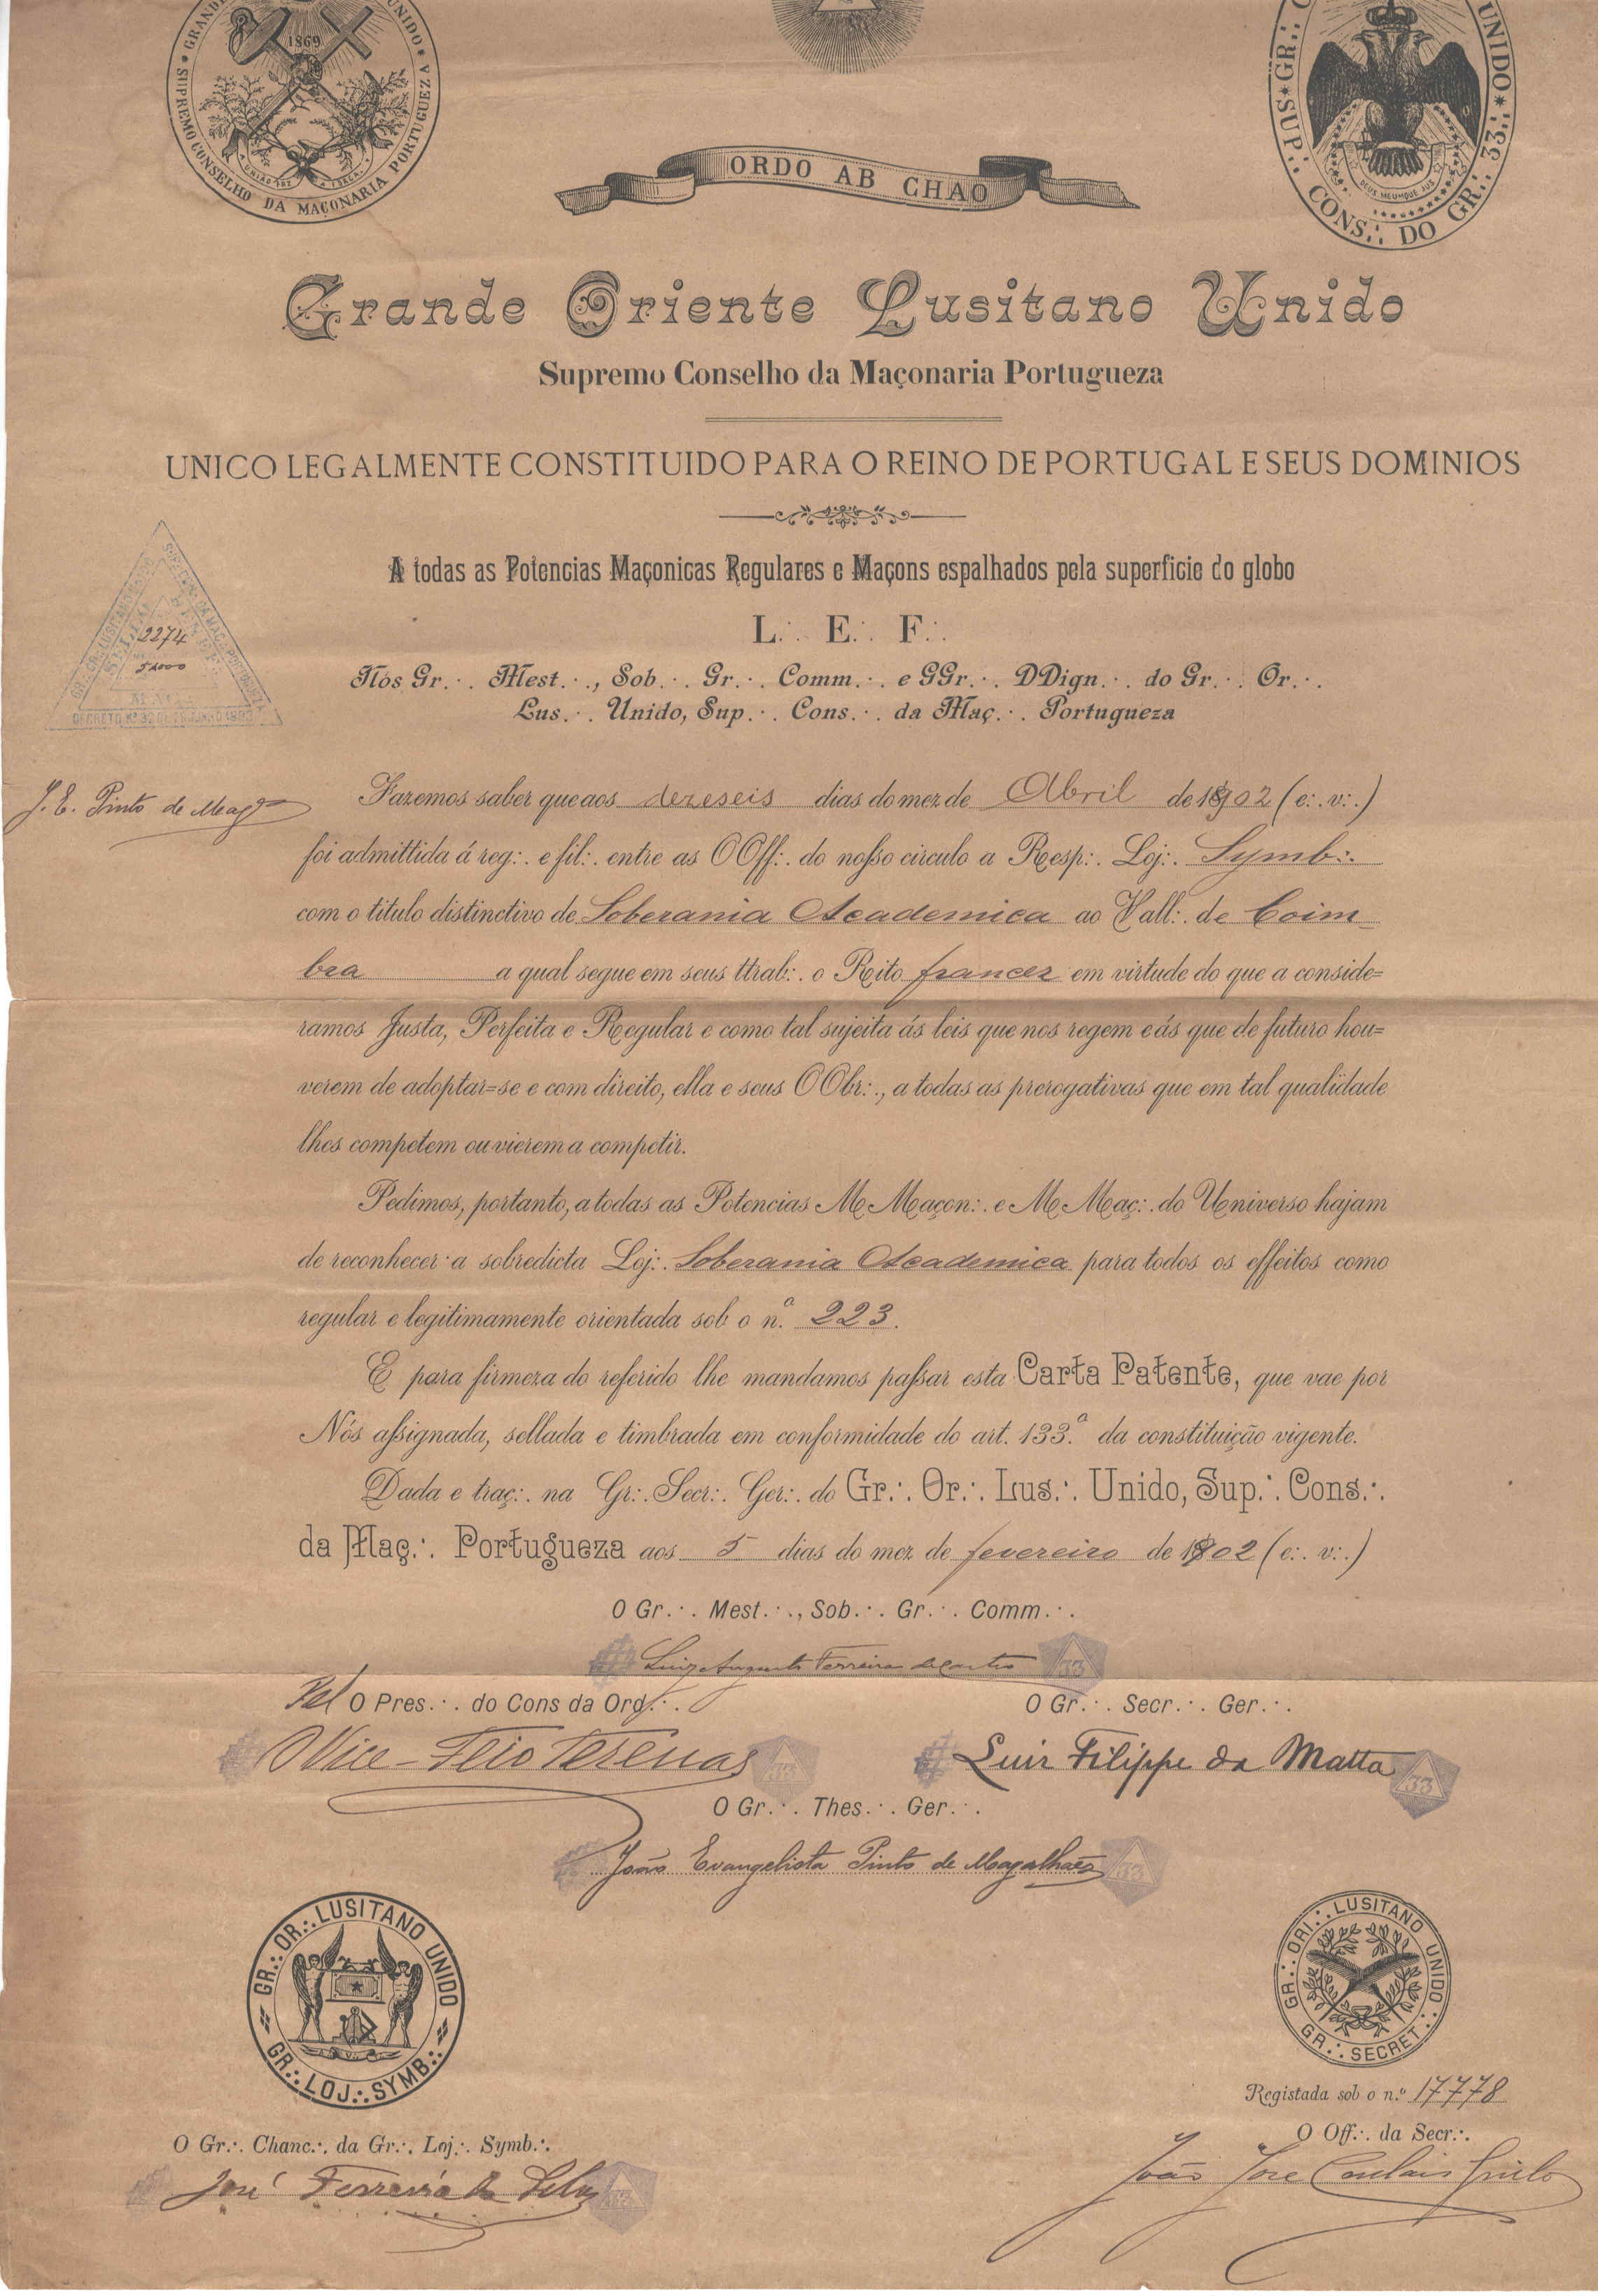 GRANDE
UNIDO
1869
SUPREMO CONSELHO DA MAÇONARIA PORTUGUEZA
ORDO AB CHAO
SUP∴ GR∴
UNIDO
CONS∴ DO GR∴ 33∴
DEUS MEUMQUE JUS
Grande Oriente Lusitano Unido
Supremo Conselho da Maçonaria Portugueza
UNICO LEGALMENTE CONSTITUIDO PARA O REINO DE PORTUGAL E SEUS DOMINIOS
A todas as Potencias Maçonicas Regulares e Maçons espalhados pela superficie do globo
L∴ E∴ F∴
2274
5$000
Nós Gr∴ Mest∴, Sob∴ Gr∴ Comm∴ e GGr∴ DDign∴ do Gr∴ Or∴
Lus∴ Unido, Sup∴ Cons∴ da Maç∴ Portugueza
J. E. Pinto de Mages
Fazemos saber que aos dezeseis dias do mez de Abril de 1902 (e∴ v∴)
foi admittida á reg∴ e fil∴ entre as OOff∴ do nosso circulo a Resp∴ Loj∴ Symb∴
com o titulo distinctivo de Soberania Academica ao Vall∴ de Coim
bra a qual segue em seus ttrab∴ o Rito francez em virtude do que a conside=
ramos Justa, Perfeita e Regular e como tal sujeita ás leis que nos regem e ás que de futuro hou=
verem de adoptar=se e com direito, ella e seus OObr∴, a todas as prerogativas que em tal qualidade
lhes competem ou vierem a competir.
Pedimos, portanto, a todas as Potencias MMaçon∴ e MMaç∴ do Universo hajam
de reconhecer a sobredicta Loj∴ Soberania Academica para todos os effeitos como
regular e legitimamente orientada sob o n.º 223.
E para firmeza do referido lhe mandamos passar esta Carta Patente, que vae por
Nós assignada, sellada e timbrada em conformidade do art. 133.º da constituição vigente.
Dada e traç∴ na Gr∴ Secr∴ Ger∴ do Gr∴ Or∴ Lus∴ Unido, Sup∴ Cons∴
da Maç∴ Portugueza aos 5 dias do mez de fevereiro de 1902 (e∴ v∴)
O Gr∴ Mest∴, Sob∴ Gr∴ Comm∴
Luiz Augusto Ferreira de Castro 33
Pel O Pres∴ do Cons da Ord∴
O Gr∴ Secr∴ Ger∴
O Vice-Feio Terenas 33
Luiz Filippe da Matta 33
O Gr∴ Thes∴ Ger∴
João Evangelista Pinto de Magalhães 33
GR∴ OR∴ LUSITANO UNIDO
GR∴ LOJ∴ SYMB∴
GR∴ ORI∴ LUSITANO UNIDO
GR∴ SECRET∴
Registada sob o n.º 17778
O Off∴ da Secr∴
O Gr∴ Chanc∴ da Gr∴ Loj∴ Symb∴
João José
José Ferreira da Silva